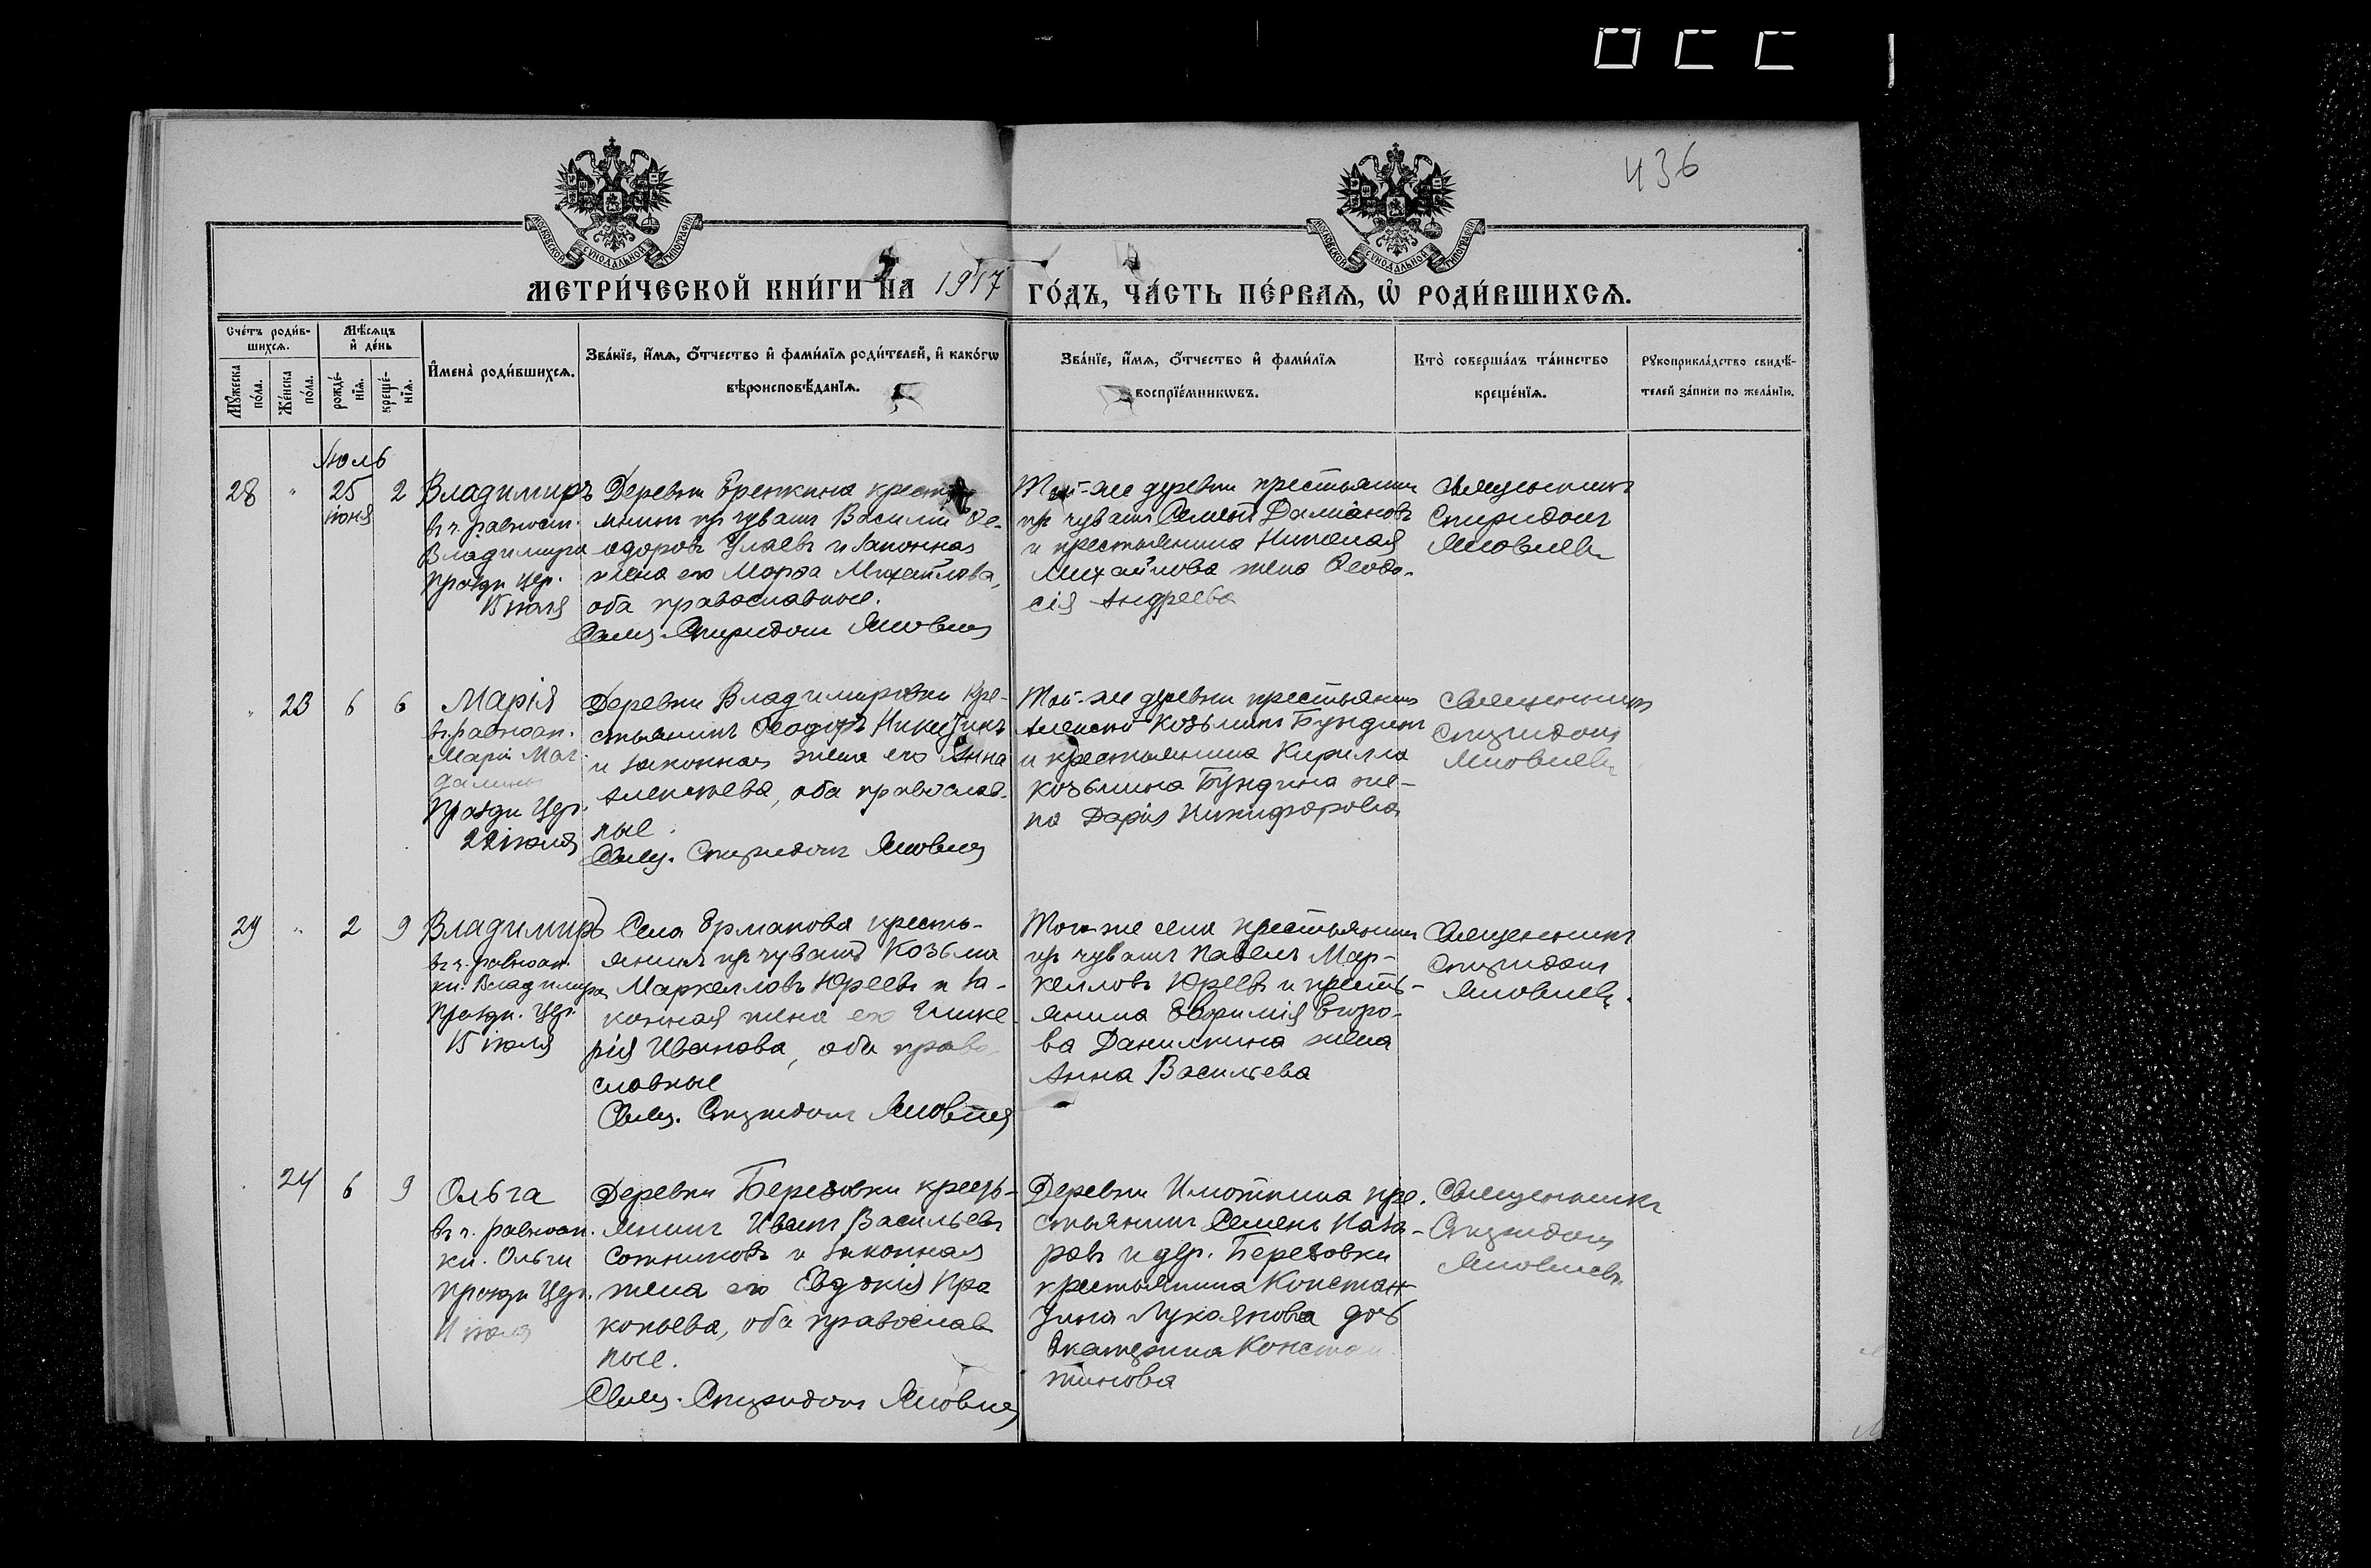 436
МОСКОВСКОЙ СѴНОДАЛЬНОЙ ТИПОГРАФІИ
МОСКОВСКОЙ СѴНОДАЛЬНОЙ ТИПОГРАФІИ
МЕТРИ́ЧЕСКОЙ КНИ́ГИ НА 1917 ГО́ДЪ, ЧА́СТЬ ПЕ́РВАЯ, Ѡ РОДИ́ВШИХСЯ.
Сче́тъ роди́в-
шихся.
Мѣ́сяцъ
и̂ де́нь
Мꙋ́жеска
по́ла.
Же́нска
по́ла.
рожде́-
нїя.
креще́-
нїя.
И҆мена̀ роди́вшихся.
Зва́нїе, и҆́мя, ѻ҆́тчество и҆ фами́лїя роди́телей, и҆ како́гѡ
вѣроисповѣ́данїя.
Зва́нїе, и҆́мя, ѻ҆́тчество и҆ фами́лїя
воспрїе́мникѡвъ.
Кто̀ соверша́лъ та́инство
креще́нїя.
Рꙋкоприкла́дство свидѣ́-
телей за́писи по жела́нїю.
Июль
28 " 25 2
июня
Владимиръ
въ ч. равноап.
Владимира
праздн. цер.
15 июля
Деревни Еренкина кресть
янинъ из чувашъ Василій Ѳе-
одоровъ Улаевъ и законная
жена его Марѳа Михайлова,
оба православные.
Свящ. Спиридонъ Яковлев
Той-же деревни крестьянин
из чувашъ Семенъ Даміановъ
и крестьянина Николая
Михайлова жена Ѳеодо-
сія Андреева
Священникъ
Спиридонъ
Яковлевъ
" 23 6 6
Марія
въ ч. равноап.
Маріи Маг
далины
праздн. цер.
22 июля
Деревни Владимировки кре-
стьянинъ Ѳеодоръ Никитинъ
и законная жена его Анна
Алексѣева, оба православ-
ные.
Свящ. Спиридонъ Яковлев
Той-же деревни крестьянин
Алексѣй Козьминъ Бундинъ
и крестьянина Кирилла
Козьмина Бундина же-
на Дарія Никифорова
Священникъ
Спиридонъ
Яковлевъ
29 " 2 9
Владимиръ
въ ч. равноап.
кн. Владимира
праздн. цер.
15 июля
Села Ермакова кресть-
янинъ из чувашъ Козьма
Маркелловъ Юреевъ и за-
конная жена его Глике
рія Иванова, оба право
славные
Свящ. Спиридонъ Яковлев
Того же села крестьянин
из чувашъ Павелъ Мар-
келловъ Юреевъ и кресть-
янина Евфимія Егоро-
ва Данилкина жена
Анна Васильева
Священникъ
Спиридонъ
Яковлевъ.
24 6 9
Ольга
въ ч. равноап.
кн. Ольги
праздн. цер.
11 июля
Деревни Березовки кресть-
янинъ Иванъ Васильевъ
Сотниковъ и законная
жена его Евдокія Про
копьева, оба православ
ные.
Свящ. Спиридонъ Яковлев
Деревни кре-
стьянинъ Семенъ Наза-
ровъ и дер. Березовки
крестьянина Констан
тина Лукоянова дочь
Екатерина Констан
тинова
Священникъ
Спиридонъ
Яковлевъ.